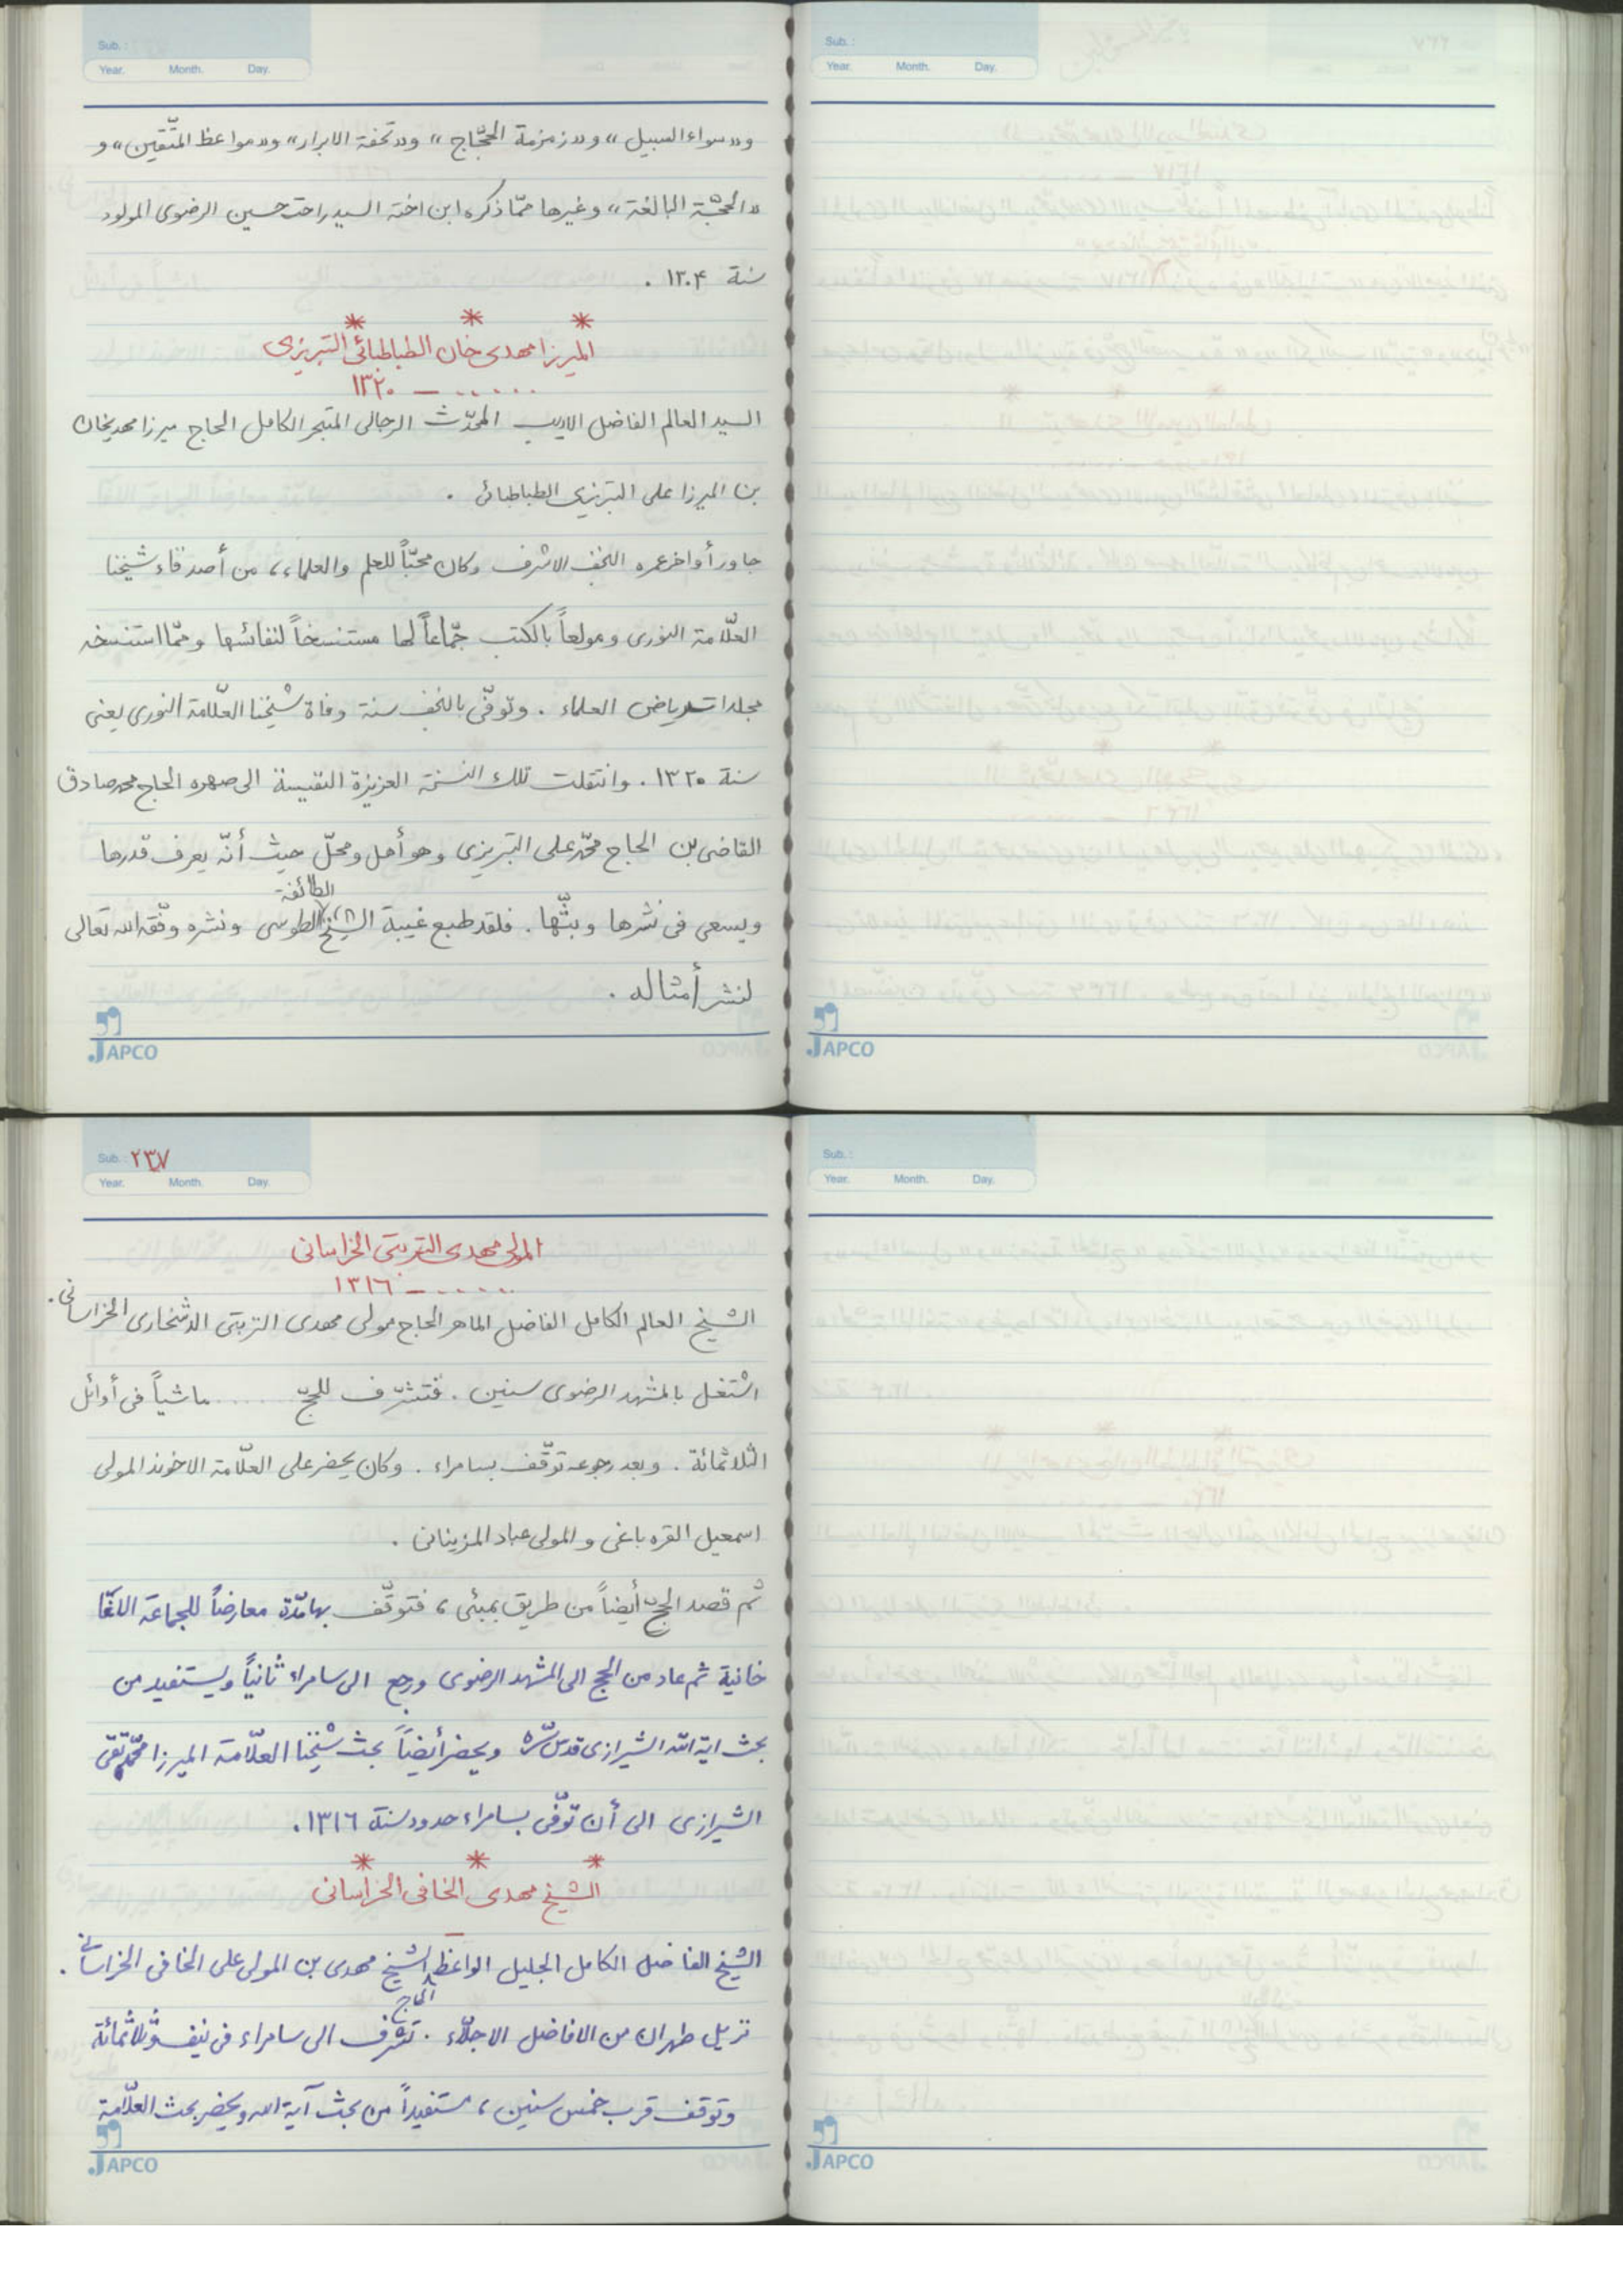 Sub. :
Year. Month. Day.
و«سواء السبيل» و«زمزمة الحجّاج» و«تحفة الابرار» و«مواعظ المتّقين» و
«الحجّة البالغة» وغيرها ممّا ذكره ابن اخته السيد راحت حسين الرضوى المولود
سنة ١٣٠۴ .
* * *
الميرزا مهدى خان الطباطبائى التبريزى
...... – ١٣٢٠
السيد العالم الفاضل الاديب المحدّث الرجالى المتبحر الكامل الحاج ميرزا مهديخان
بن الميرزا على التبريزى الطباطبائى .
جاور أواخر عمره النجف الاشرف وكان محبّاً للعلم والعلماء، من أصدقاء شيخنا
العلّامة النورى ومولعاً بالكتب جمّاعاً لها مستنسخاً لنفائسها وممّا استنسخه
مجلدات رياض العلماء . وتوفّى بالنجف سنة وفاة شيخنا العلّامة النورى يعنى
سنة ١٣٢٠ . وانتقلت تلك النسخة العزيزة النفيسة الى صهره الحاج محمد صادق
القاضى بن الحاج محمّد على التبريزى وهو أهل ومحلّ حيث أنّه يعرف قدرها
ويسعى فى نشرها وبثّها . فلقد طبع غيبة الشيخ الطائفة الطوسى ونشره وفّقه الله تعالى
لنشر أمثاله .
JAPCO
Sub. :
Year. Month. Day.
JAPCO
Sub. : ٢٣٧
Year. Month. Day.
المولى مهدى التربتى الخراسانى
...... – ١٣١٦
الشيخ العالم الكامل الفاضل الماهر الحاج مولى مهدى التربتى الخراسانى .
اشتغل بالمشهد الرضوى سنين . فتشرّف للحجّ ...... ماشياً فى أوائل
الثلاثمائة . وبعد رجوعه توقّف بسامراء . وكان يحضر على العلّامة الاخوند المولى
اسمعيل القره باغى والمولى عباد المزينانى .
ثم قصد الحجّ أيضاً من طريق بمبئى، فتوقّف بها مدّة معارضاً للجماعة الآغا
خانية ثم عاد من الحج الى المشهد الرضوى ورجع الى سامراء ثانياً ويستفيد من
بحث اية الله الشيرازى قدس سرّه ويحضر أيضاً بحث شيخنا العلّامة الميرزا محمّد تقى
الشيرازى الى أن توفّى بسامراء حدود سنة ١٣١٦ .
* * *
الشيخ مهدى الخافى الخراسانى
الشيخ الفاضل الكامل الجليل الواعظ الحاج الشيخ مهدى بن المولى على الخافى الخراسانى .
نزيل طهران من الافاضل الاجلّاء . تشرّف الى سامراء فى نيف وثلاثمائة
وتوقف قرب خمس سنين، مستفيداً من بحث آية الله ويحضر بحث العلّامة
JAPCO
Sub. :
Year. Month. Day.
JAPCO